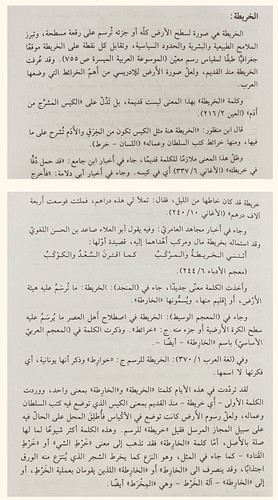 الخريطة:
الخريطة هي صورة لسطح الأرض كلّه أو جزئه تُرسم على رقعة مسطحة، وتبرز
الملامح الطبيعية والبشرية والحدود السياسية، وتقابل كل نقطة على الخريطة موقعًا
جغرافيًّا طبقًا لمقياس رسم معيّن (الموسوعة العربية الميسرة ص ٧٥٥). وقد عُرفت
الخريطة منذ القديم، ولعلّ صورة الأرض للإدريسي من أهمّ الخرائط التي وضعها
العرب.
وكلمة «الخريطة» بهذا المعنى ليست قديمة، بل تَدُلّ على «الكيس المُشْرَج من
أدم» (العين ٢١٦/٢).
قال ابن منظور: «الخريطة هنة مثل الكيس تكون من الخِرَقِ والأَدَم تُشرج على ما
فيها، ومنها خرائط كتب السلطان وعماله» (اللسان – خرط).
وظلّ هذا المعنى ملازمًا للكلمة قديمًا، جاء في أخبار ابن جامع: «قد حمل دُفًّا
في خريطته» (الأغاني ٣٣٧/٦) أي في كيسه. وجاء في أخبار أبي دلامة: «فأخرج
خريطة قد كان خاطها من الليل، فقال: تملأ لي هذه دراهم، فملئت فوسعت أربعة
آلاف درهم» (الأغاني ٢٤٠/١٠).
وجاء في أخبار مجاهد العامري: «وفيه يقول أبو العلاء صاعد بن الحسن اللغوي
وقد استماله بخريطة مال ومركب أهداهما إليه، قصيدة أولها:
أتتني الخريطة والمركب كما اقترن السَّعْدُ والكوكبُ
(معجم الأدباء ٢٤٤/٦).
وأخذت الكلمة معنًى جديدًا، جاء في (المنجد): الخريطة: ما تُرسَمُ عليه هيئة
الأرض، أو إقليم منها، ويُسمّونها «الخارطة».
وجاء في (المعجم الوسيط): الخريطة في اصطلاح أهل العصر ما يُرسم عليه
سطح الكرة الأرضية أو جزء منه. ج: «خرائط». وذكرت الكلمة في (المعجم العربيّ
الأساسيّ) باسم «الخارطة» – أيضًا –.
وفي (لغة العرب ٣٧٠/١): الخريطة للرسم ج: «خوارط» وذكر أنها يونانية، أي
فكرتها لا اسمها.
لقد تردّدت في هذه الأيام كلمتا «الخريطة» و«الخارطة» بمعنى واحد، ووردت
الكلمة الأولى – أي خريطة – منذ القديم بمعنى الكيس الذي توضع فيه كتب السلطان
وعماله، ولعلّ رسوم الأرض كانت توضع في الأكياس فأُطلق المحل على الحال فيه
على سبيل المجاز المرسل فقيل «خريطة» للرسم. وهذه الكلمة أكثر شيوعًا لما لها
صلة بالأصل، أمّا كلمة «الخارطة» فقد تذهب إلى معنى «خَرْطِ الشيء» أو «خَرْطِ
القتاد» – كما جاء في المثل، وهو النزع كما يخرط الشجر الذي يُنتزع منه الورق
اجتذابًا، وقد ينصرف الى «الخارطة» أو «الخارطة» اللذين يقومان بعملية الخَرْطِ، أو
إلى «الخارطة» – آلة الخَرْط – وهي «المِخْرَط» أيضًا.